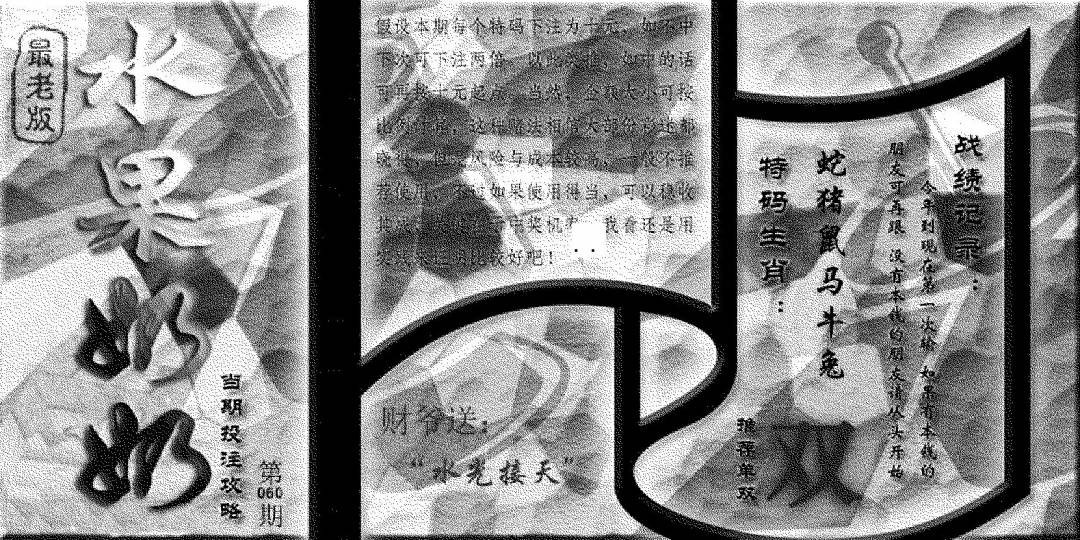 最老版
水果奶奶
当期投注攻略
第060期
假设本期每个特码下注为十元，如不中
下次可下注两倍，以此类推，如中的话
可再按十元起点，当然，金额大小可按
比例计、这种赌法相信大部份彩迷都
晓得，但是风险与成本较高，一般不推
荐使用，不过如果使用得当，可以稳收
我看还是用
比较好吧！
财爷送：
“水光接天”
战绩记录：
今年到现在第一次输 如果有本钱的
朋友可再跟 没有本钱的朋友请从头开始
蛇猪鼠马牛兔
特码生肖：
推荐单双
双